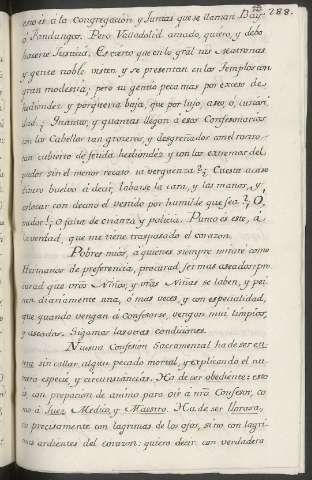 288.
esto és à la Congregación y Juntas que se llaman Bayle
ó Fandangos. Pero Valladolid amado, quiero, y debo
hacerte Justicia. Es cierto que en lo gral tus Matronas
y gente noble visten y se presentan en los Templos con
gran modestia; pero tu gentio peca mas por exceso de
hediondez y porqueria baja, que por lujo, aseo, ó, curiosi-
dad. ¿ Quantas, y quantas llegan á esos Confesonarios
con los Cabellos tan groseros y desgreñados con el rostro
tan cubierto de feuda hediondéz y con los extremos del
pudor sin el menor recato ni verguenza? ¿ Cuesta acaso
buelvo á decir, labarse la cara, y las manos, y
colocar con decoro el vestido por humilde que sea? ¡ O
pudor! ¡ O falta de crianza y policia. Punto es este, á
la verdad, que me tiene traspasado el corazon.
Pobres mios, á quienes siempre miraré como
Hermanos de preferencia, procurad ser mas aseados: pro-
curad que vros Niños, y vras Niñas se laben, y pei-
nen diariamente una, ó mas veces, y con especialidad,
que quando vengan á confesarse, vengan muy limpios,
y aseados. Sigamos las otras condiciones.
Nuestra Confesion Sacramental ha de ser en-
tera sin callar algun pecado mortal, y explicando el nu-
mero especie y circunstancias. Ha de ser obediente: esto
es, con preparacion de animo para oir á nro Confesor, co-
mo á Juez Medico, y Maestro. Ha de ser llorosa,
no precisamente con lagrimas de los ojos, si no con lagri-
mas ardientes del corazon: quiero decir con verdadera